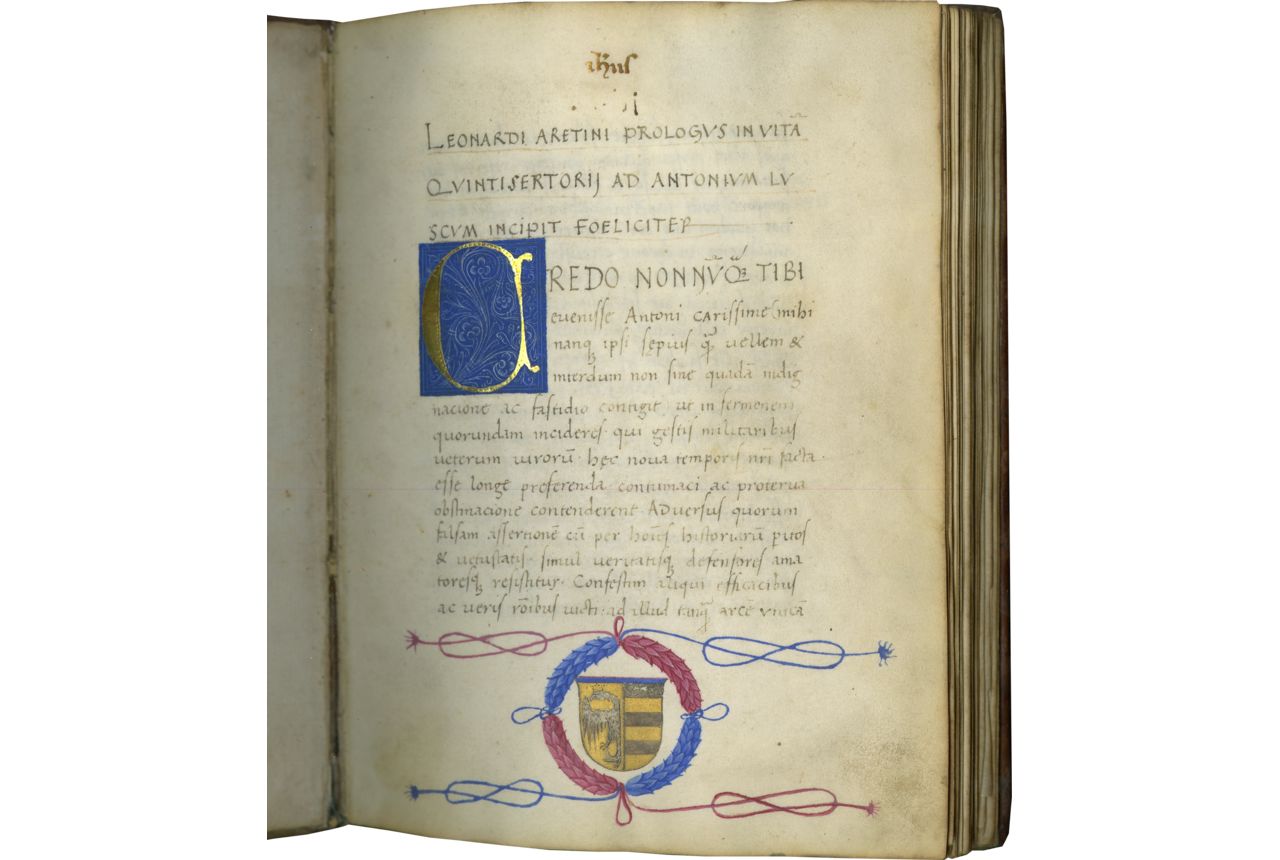 yhus
LEONARDI ARETINI PROLOGVS IN VITĀ
QVINTI SERTORIJ AD ANTONIVM LV
SCVM INCIPIT FOELICITER
CREDO NON NVQ̄ TIBI
evenisse Antoni carissime (mihi
nanq ipsi sepius q̄ vellem &
interdum non sine quadā indig
nacione ac fastidio contigit ut in sermonem
quorundam inciderēs · qui gestis militaribus
ueterum uirorū · hęc nova temporis nr̄i facta ·
esse longe preferenda · contumaci ac proterua
obstinacione contenderent · Adversus quorum
falsam assertionē cū per hoīes historiarū p̄itos
& uetustatis · simul veritatisq defensores ama
toresq resistitur · Confestim aliqui efficacibus
ac veris rōibus uicti · ad illud tanq̄ arcē